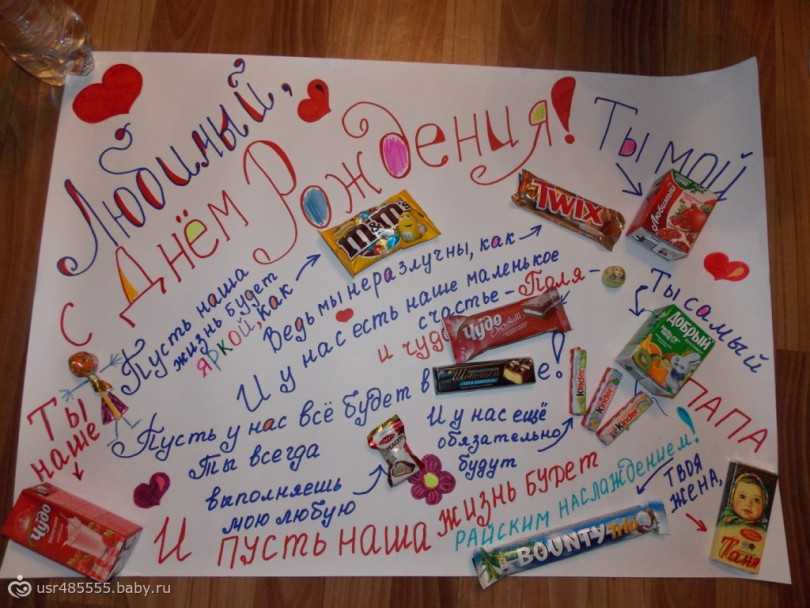 Любимый,
с Днём Рождения!
Ты мой
Любимый
Пусть наша
жизнь будет
яркой, как
m&m's
Ведь мы неразлучны, как
TWIX
И у нас есть наше маленькое
счастье - Поля -
и чудо
Чудо
Ты самый
Добрый
ПАПА
Пусть у нас всё будет в
е!
Ты всегда
выполняешь
мою любую
И у нас ещё
обязательно
будут
Kinder
Kinder
Kinder
Ты
наше
Чудо
И пусть наша жизнь будет
райским наслаждением!
BOUNTY trio
Твоя
жена,
Таня
usr485555.baby.ru